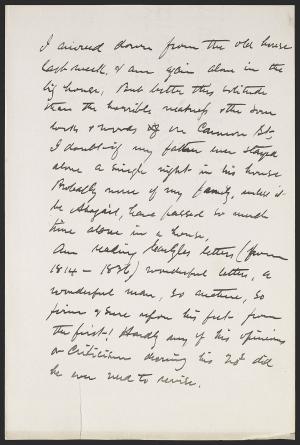 I moved down from the old house
last week, & am again alone in the
big house. But better this solitude
than the horrible racket, & the
work & words of our Common St,
I doubt if my father ever stayed
alone a single night in his house
Probably none of my family, unless it
be Abigail, have passed so much
time alone in a house,
Am reading Carlyles letters (from
1814 – 1836) wonderful letters, a
wonderful man, so austere, so
firm & sure upon his feet from
the first! Hardly any of his opinions
or criticism during his 20s did
he ever need to revise.